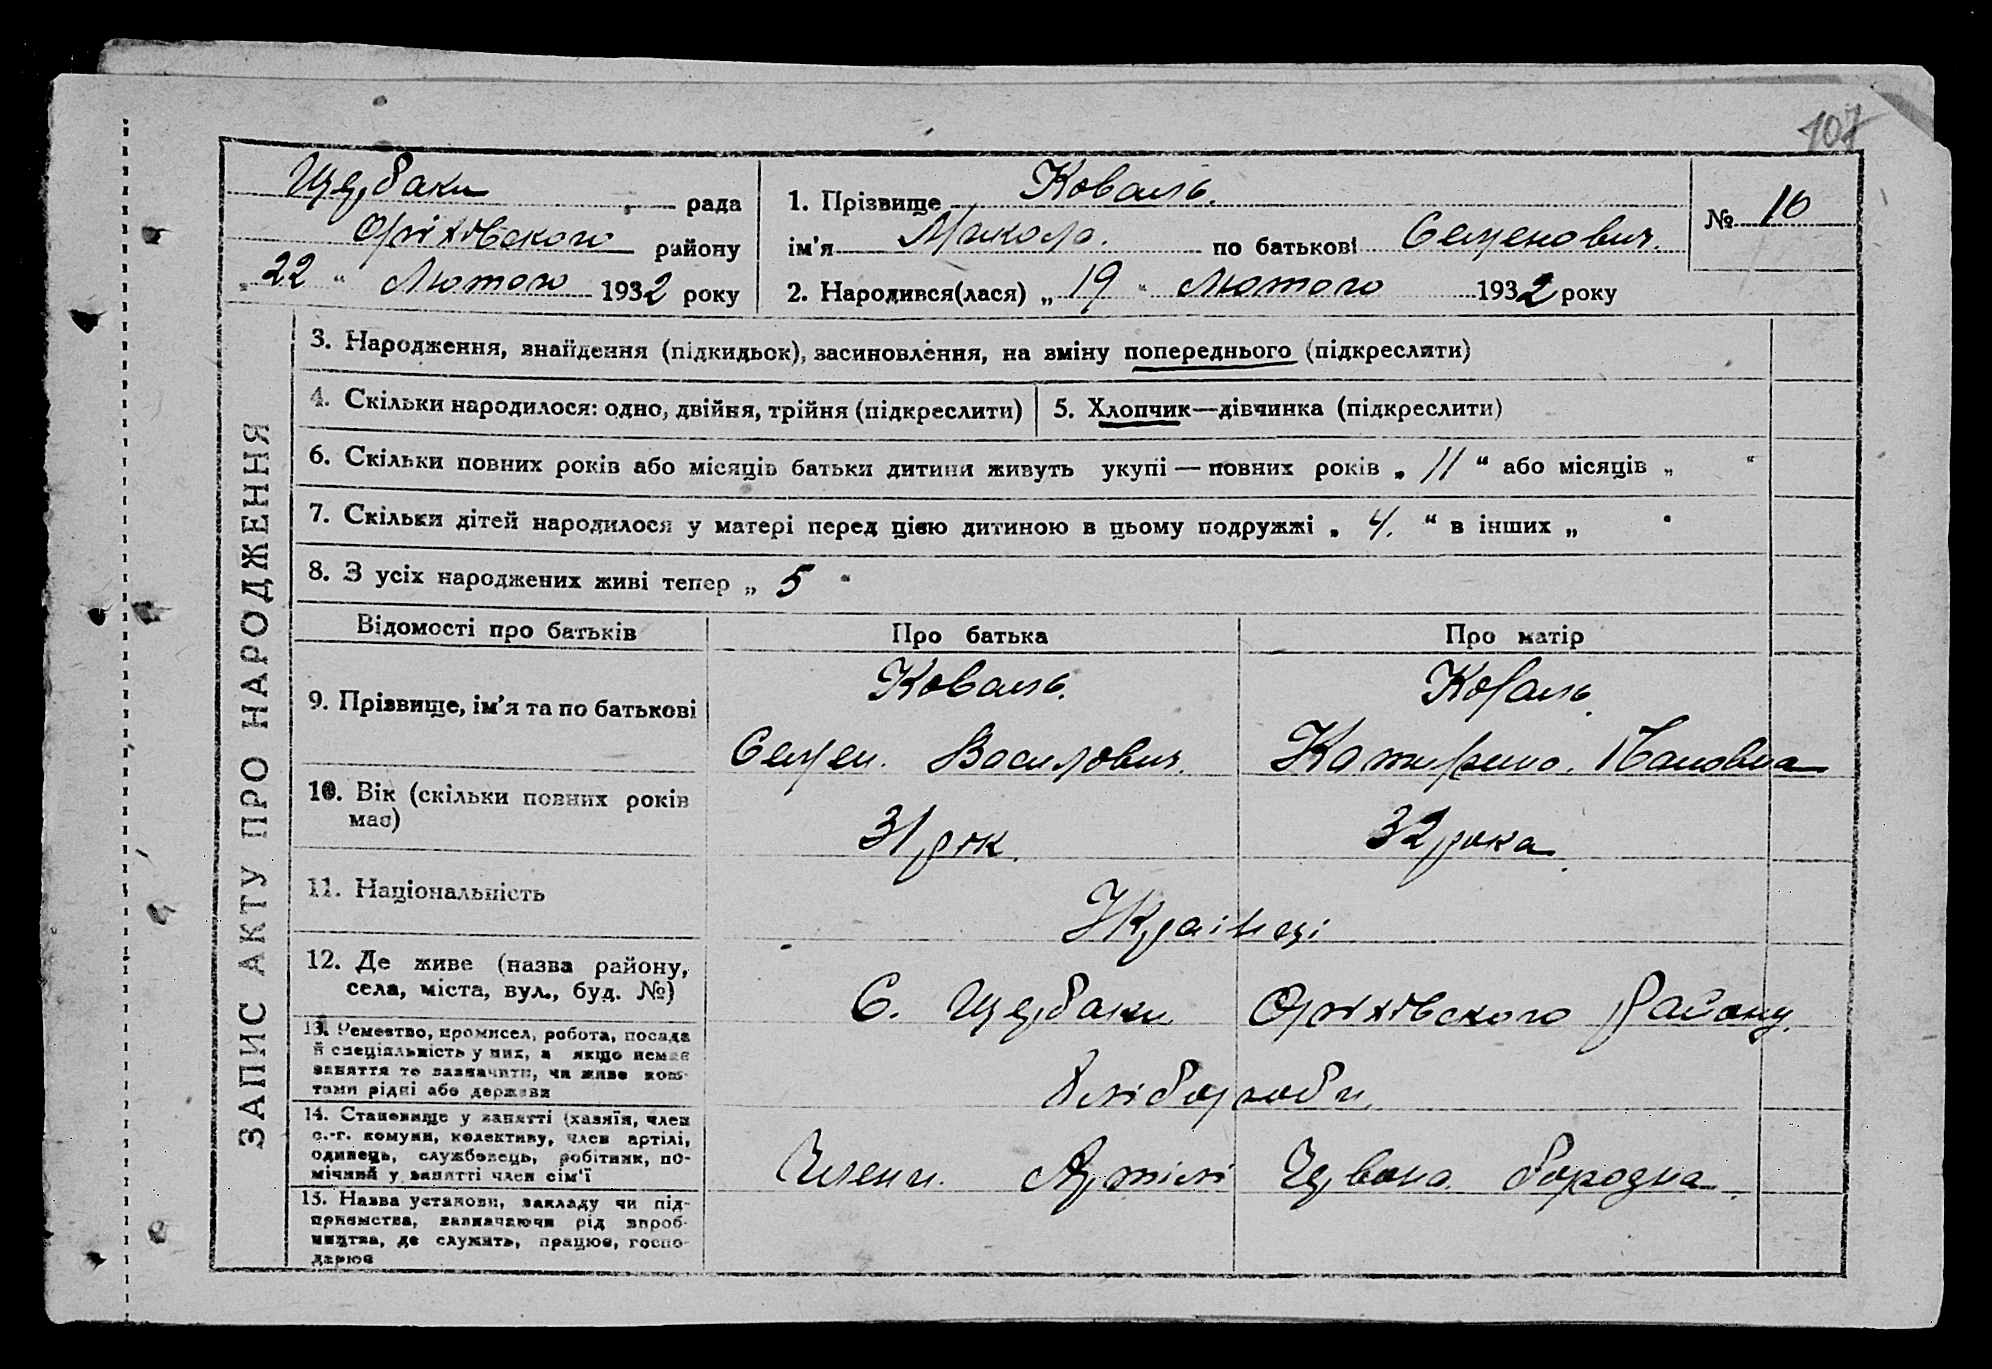 107
Щербаки рада
Оріхівського району
„22“ Лютого 1932 року
1. Прізвище Коваль.
ім'я Микола. по батькові Семенович.
2. Народився(лася) „19“ Лютого 1932 року
№ 16
ЗАПИС АКТУ ПРО НАРОДЖЕННЯ
3. Народження, знайдення (підкидьок), засиновлення, на зміну попереднього (підкреслити)
4. Скільки народилося: одно, двійня, трійня (підкреслити)
5. Хлопчик—дівчинка (підкреслити)
6. Скільки повних років або місяців батьки дитини живуть укупі — повних років „11“ або місяців „ “
7. Скільки дітей народилося у матері перед цією дитиною в цьому подружжі „4.“ в інших „ “
8. З усіх народжених живі тепер „5“
Відомості про батьків
Про батька
Про матір
9. Прізвище, ім'я та по батькові
Коваль.
Семен. Василович.
Коваль.
Катирина.
10. Вік (скільки повних років
має)
31 рік.
32 рока.
11. Національність
Українці
12. Де живе (назва району,
села, міста, вул., буд. №)
С. Щербаки Оріхівського Району.
13. Ремество, промисел, робота, посада
й спеціяльність у них, а якщо немає
заняття то зазначити, чи живе кош-
тами рідні або держави
Хлібороби.
14. Становище у занятті (хазяїн, член
с.-г. комуни, колективу, член артілі,
одинець, службовець, робітник, по-
мічний у занятті член сім'ї
Члени. Артілі Червона борозна.
15. Назва установи, закладу чи під-
приємства, зазначаючи рід вироб-
ництва, де служить, працює, госпо-
дарює